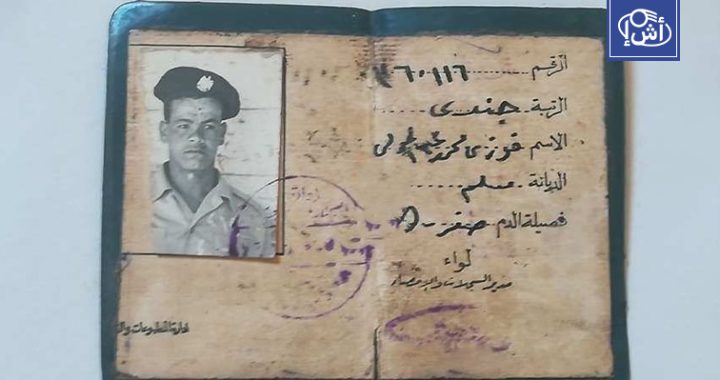 أش إ
الرقم ٣٦٠١١٦
الرتبة جندى
الاسم فوزى محمد
الديانة مسلم
فصيلة الدم صفر
لواء
مدير السجلات والإحصاء
ادارة المطبوعات